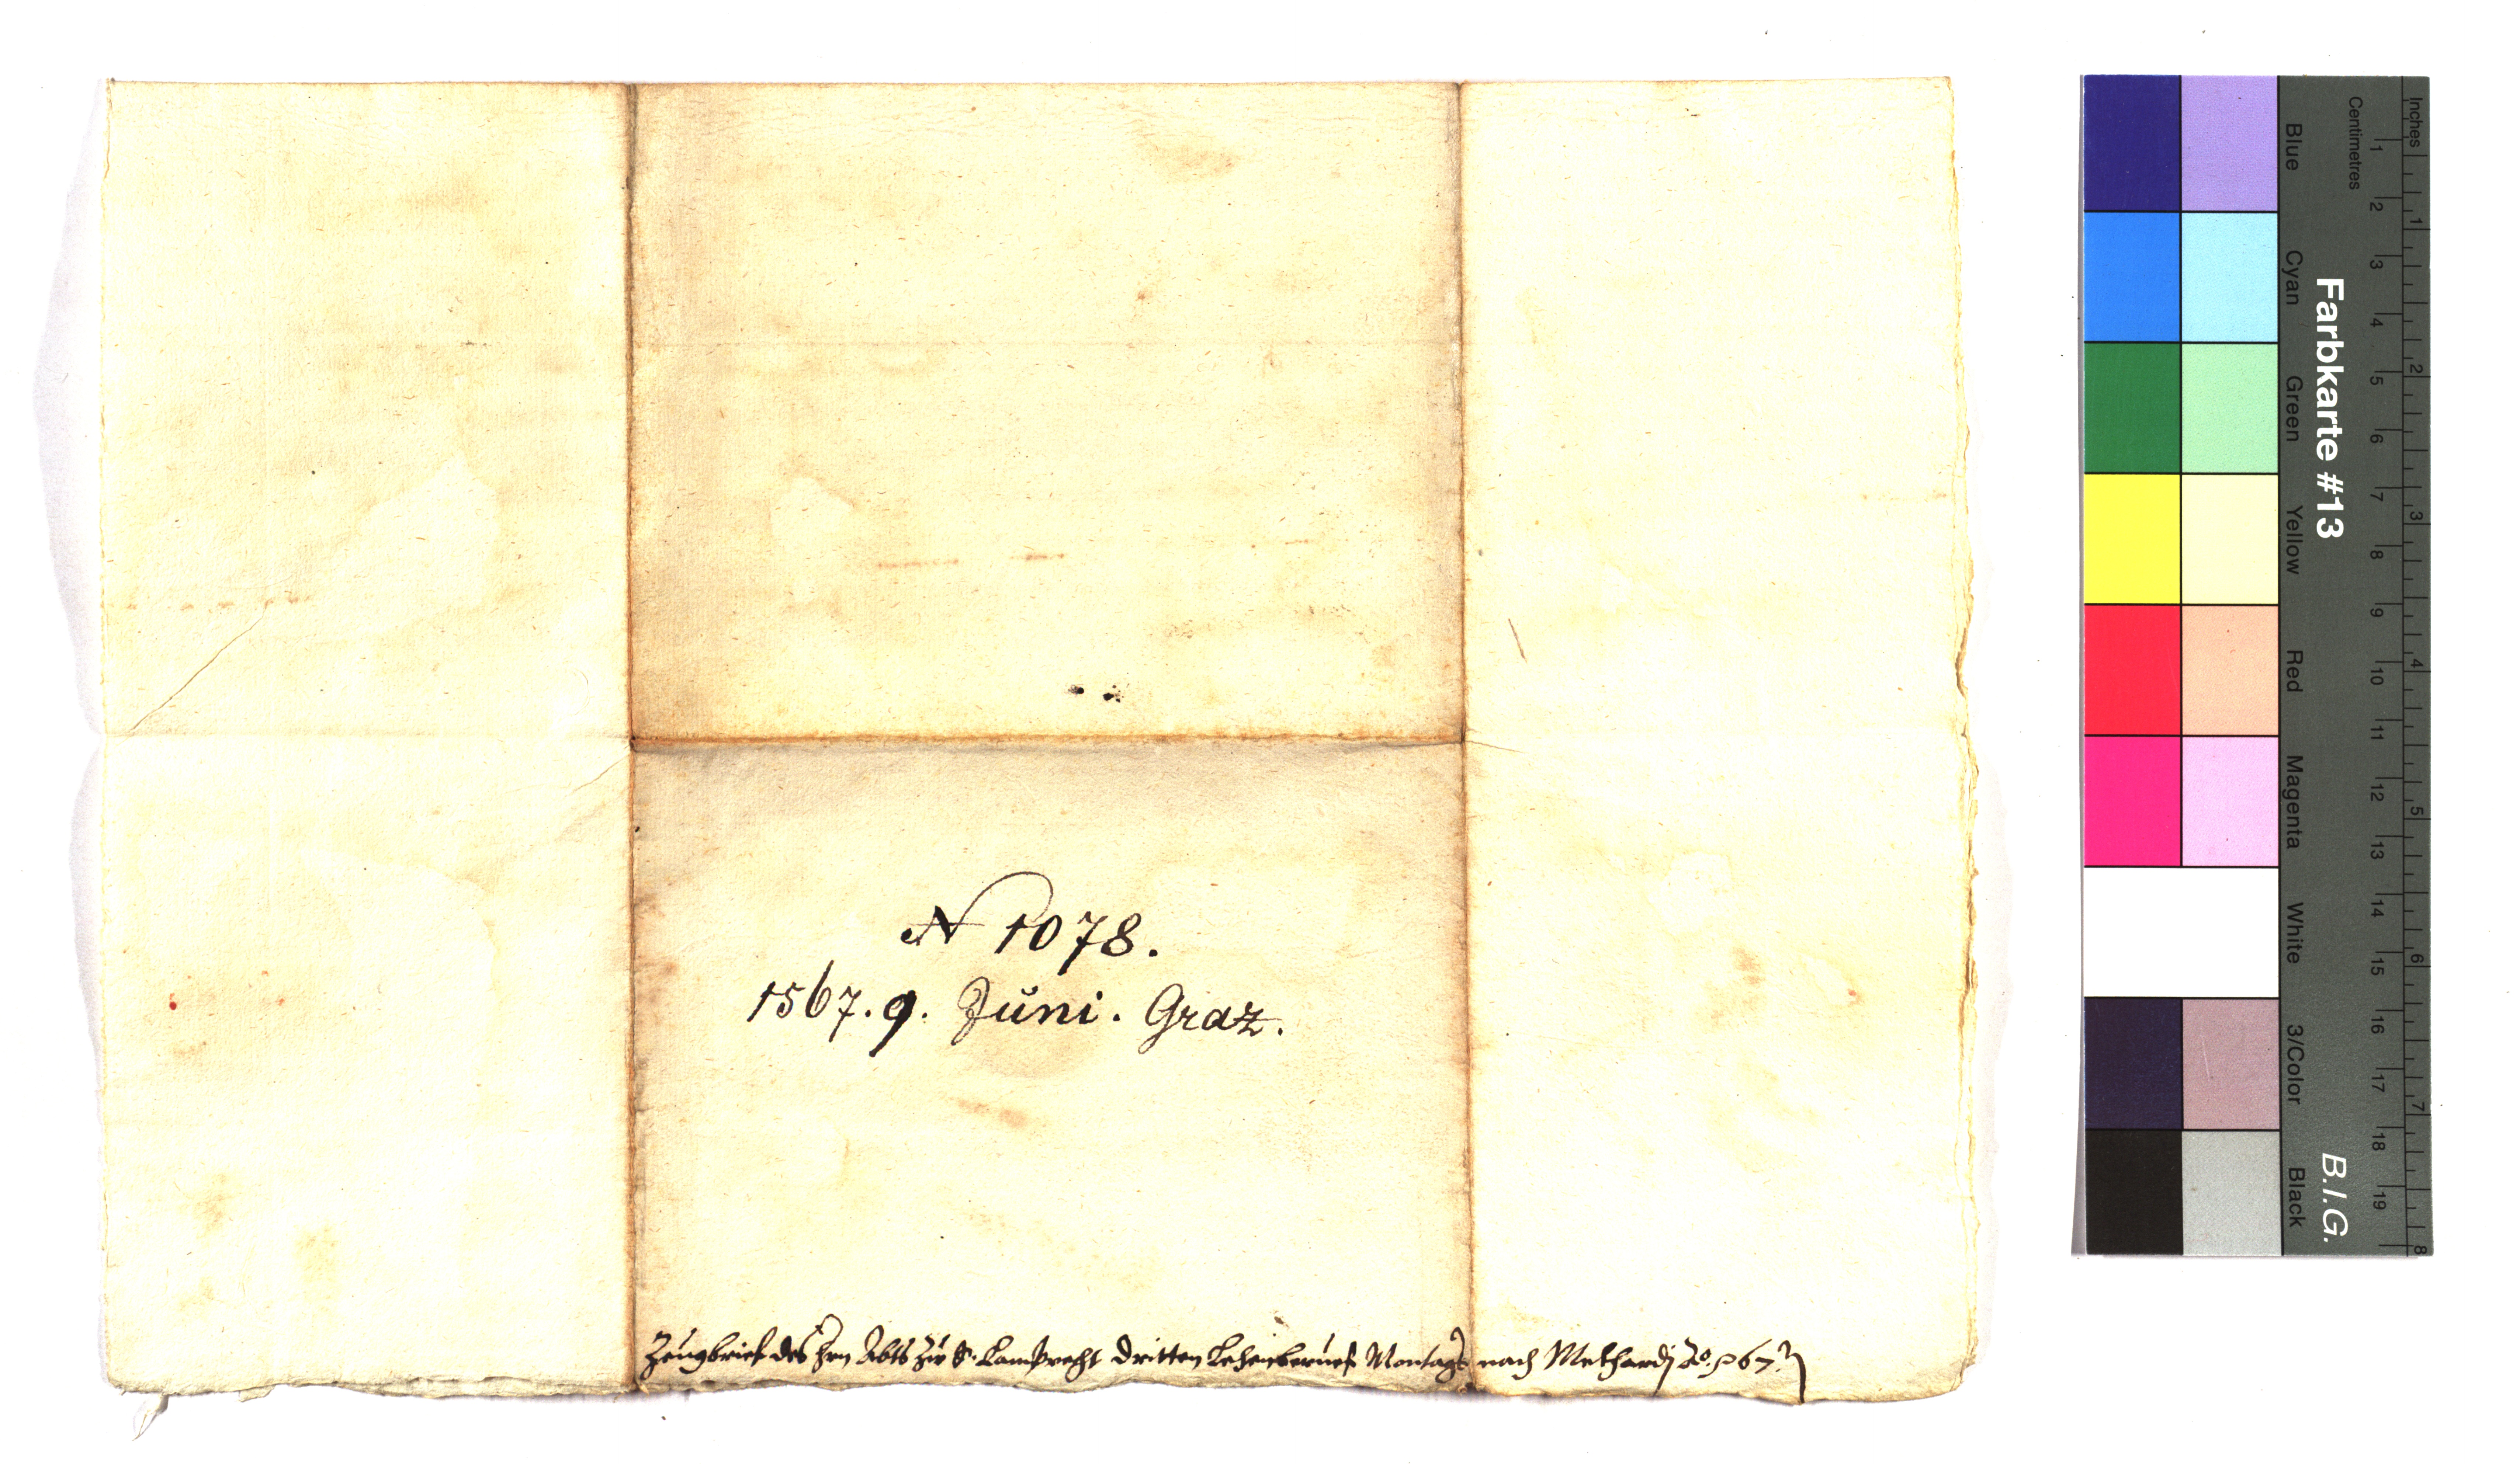 N 1078.
1567. 9. Juni. Graz.
Zeugbrief des hrn Abts zu S. Lamprecht dritten Lehenberuef Montags nach Methardj Ao. 67.
Inches
Centimetres
1 2 3 4 5 6 7 8 9 10 11 12 13 14 15 16 17 18 19
1 2 3 4 5 6 7 8
Farbkarte #13
B.I.G.
Blue Cyan Green Yellow Red Magenta White 3/Color Black